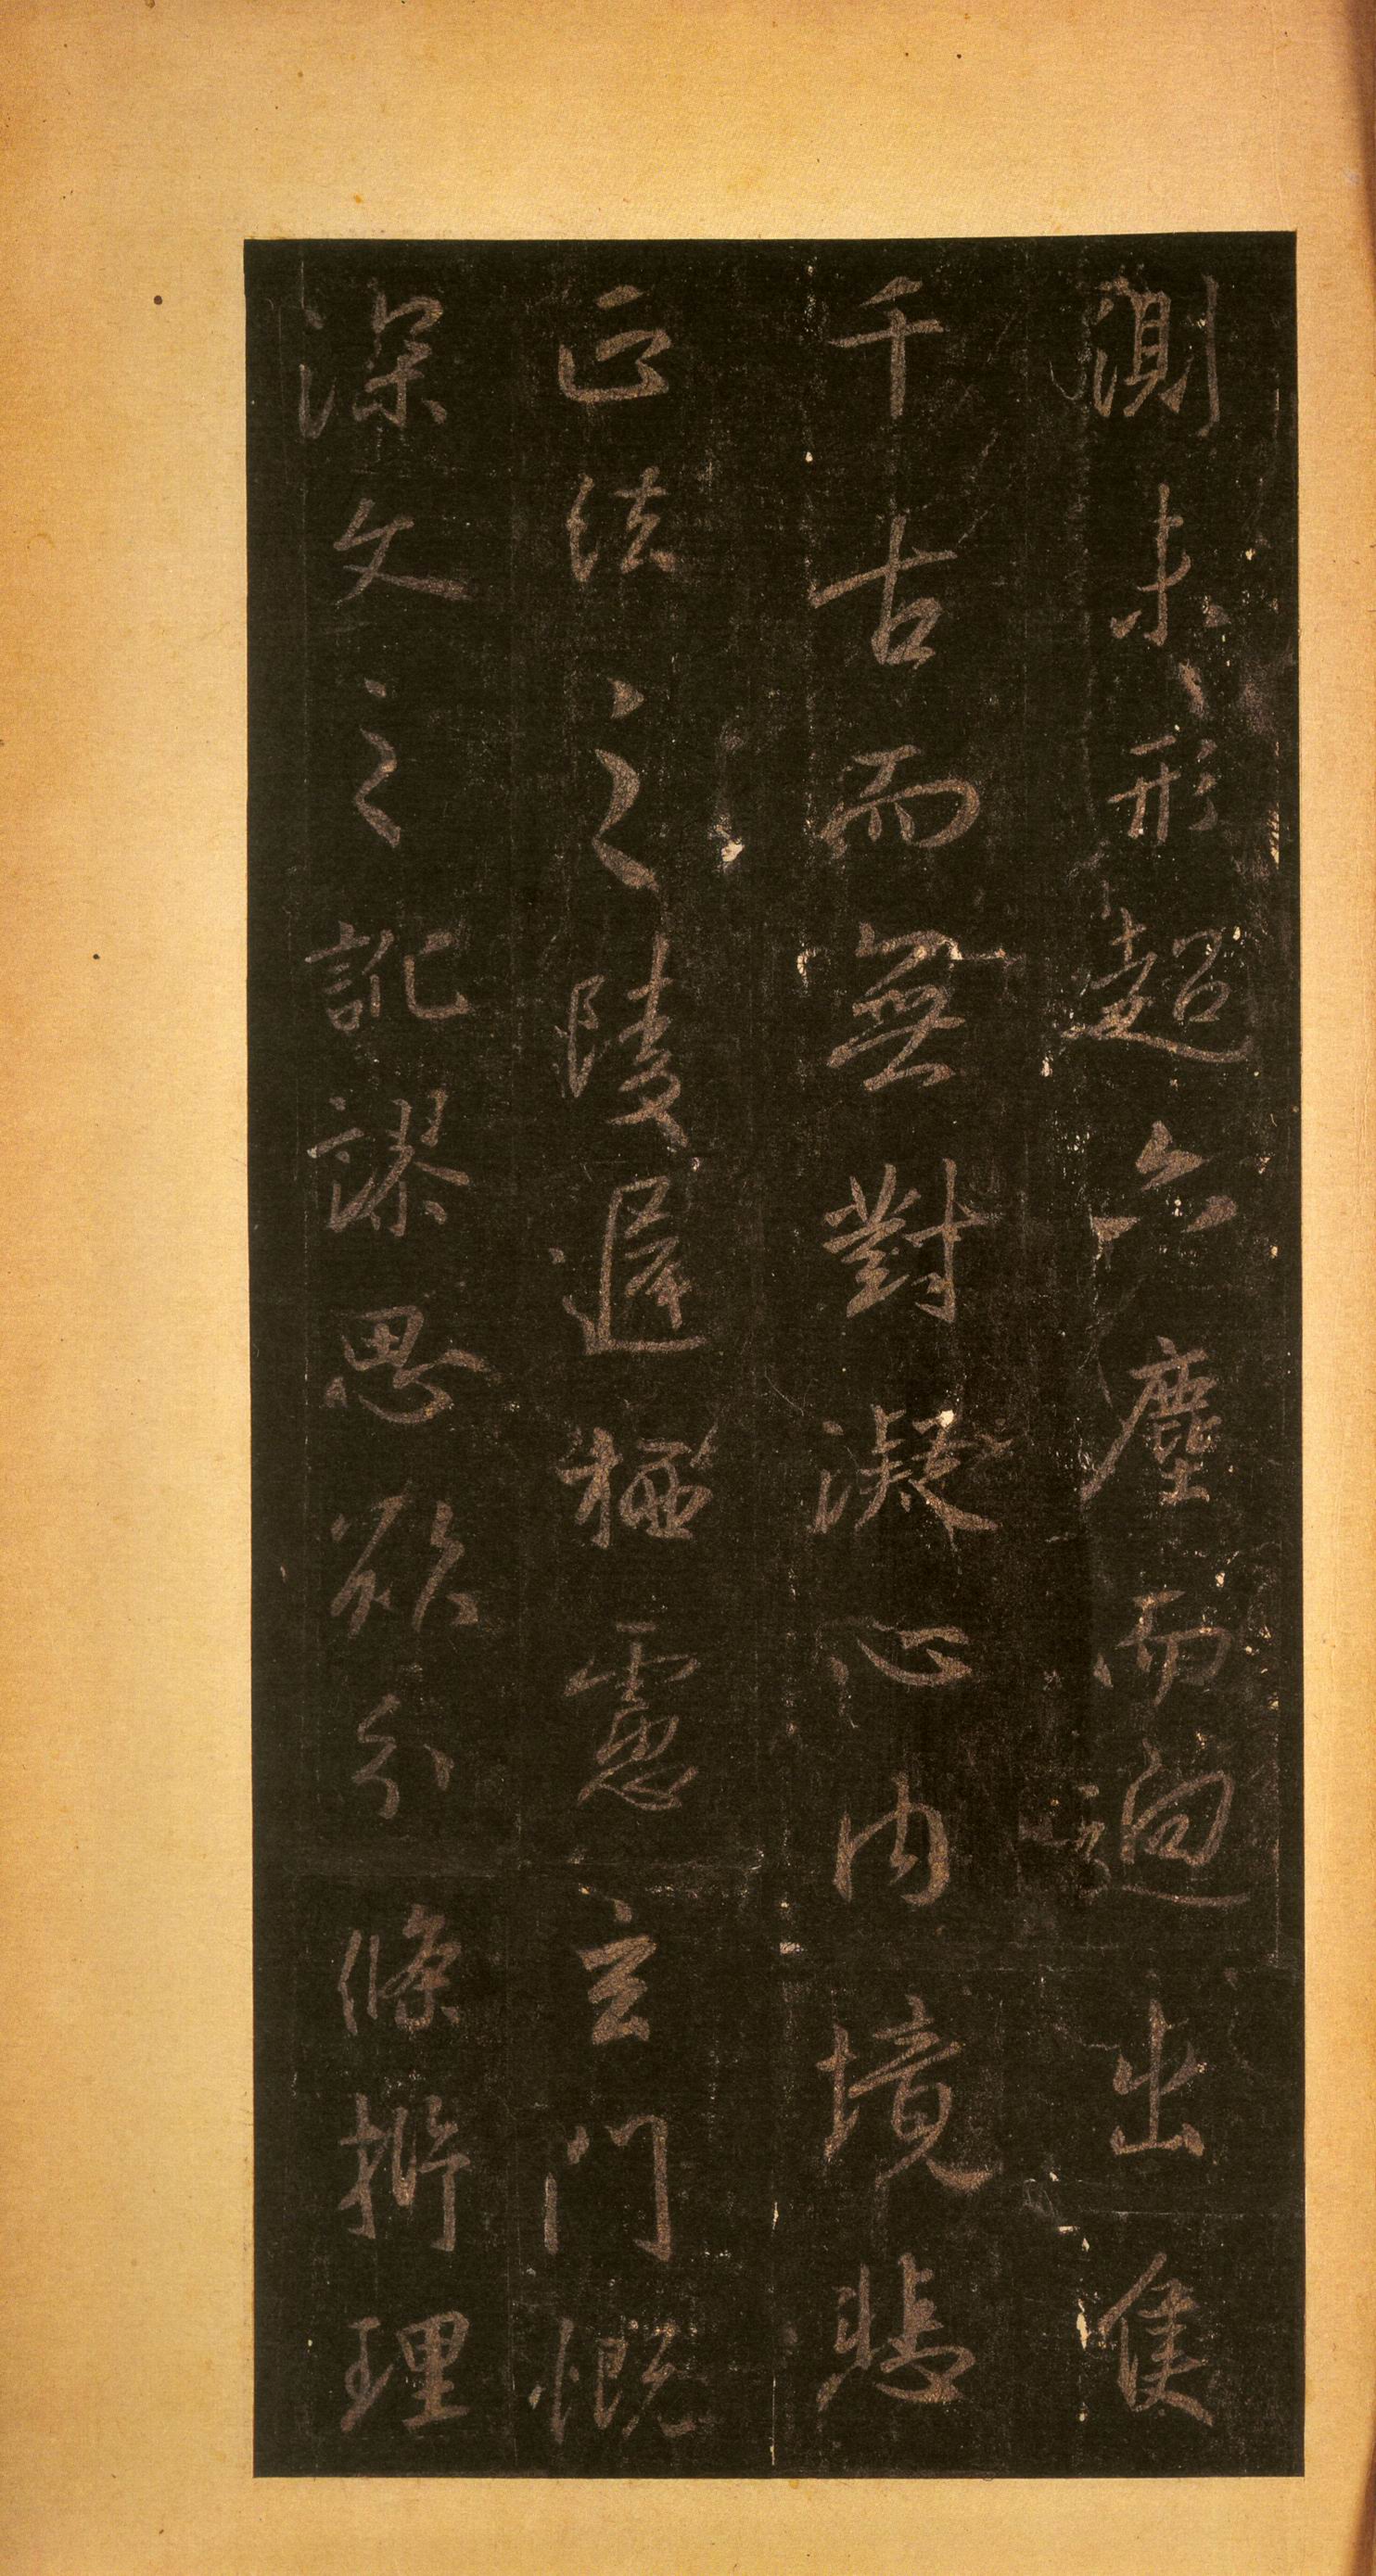 測未形超六塵而迥出隻
千古而無對凝心内境悲
正法之陵遲栖慮玄門慨
深文之訛謬思欲分條析理